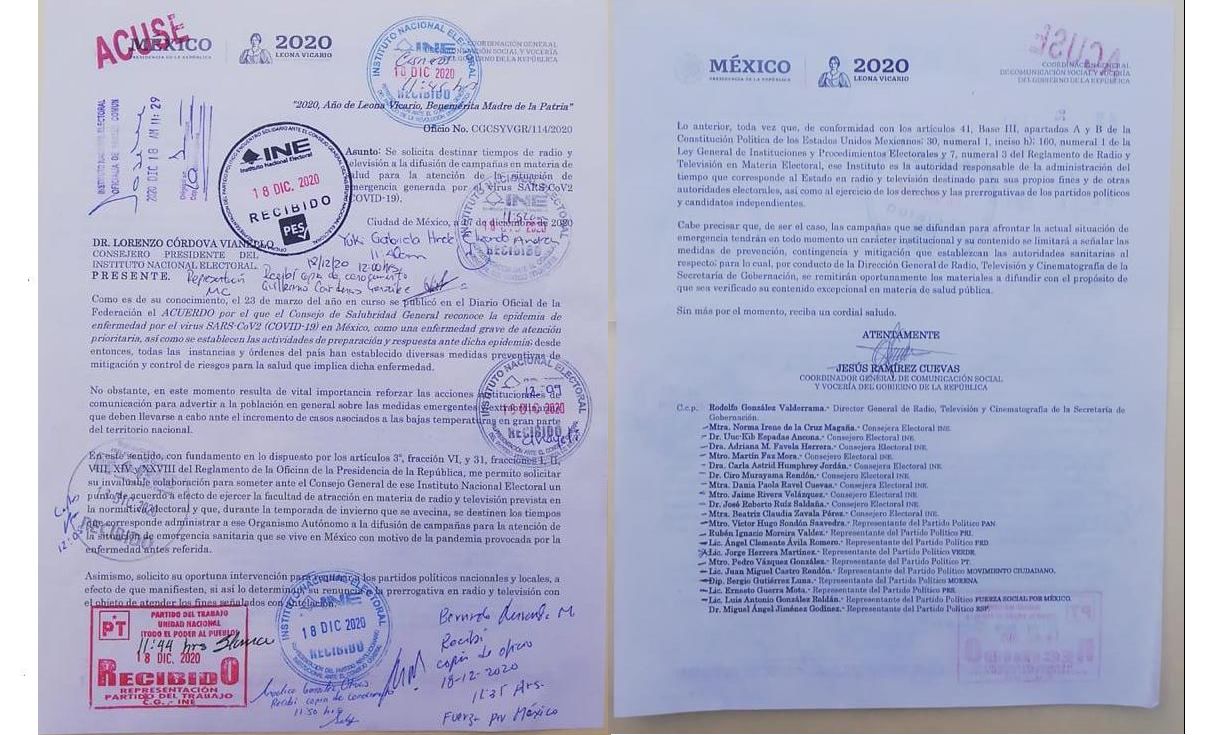 ACUSE
MÉXICO
PRESIDENCIA DE LA REPÚBLICA
2020
LEONA VICARIO
COORDINACIÓN GENERAL
DE COMUNICACIÓN SOCIAL Y VOCERÍA
DEL GOBIERNO DE LA REPÚBLICA
INSTITUTO NACIONAL ELECTORAL
INE
18 DIC 2020
RECIBIDO
"2020, Año de Leona Vicario, Benemérita Madre de la Patria"
Oficio No. CGCSYVGR/114/2020
2020 DIC 18 AM 11: 29
INE
Instituto Nacional Electoral
18 DIC. 2020
RECIBIDO
PES
Asunto: Se solicita destinar tiempos de radio y
televisión a la difusión de campañas en materia de
salud para la atención de la situación de
emergencia generada por el virus SARS-CoV2
(COVID-19).
Ciudad de México, a 17 de diciembre de 2020
DR. LORENZO CÓRDOVA VIANELLO
CONSEJERO PRESIDENTE DEL
INSTITUTO NACIONAL ELECTORAL
PRESENTE.
18/12/20 12:00 hrs
Representación
MC
Recibí copia de conocimiento
Como es de su conocimiento, el 23 de marzo del año en curso se publicó en el Diario Oficial de la
Federación el ACUERDO por el que el Consejo de Salubridad General reconoce la epidemia de
enfermedad por el virus SARS-CoV2 (COVID-19) en México, como una enfermedad grave de atención
prioritaria, así como se establecen las actividades de preparación y respuesta ante dicha epidemia; desde
entonces, todas las instancias y órdenes del país han establecido diversas medidas preventivas de
mitigación y control de riesgos para la salud que implica dicha enfermedad.
No obstante, en este momento resulta de vital importancia reforzar las acciones institucionales de
comunicación para advertir a la población en general sobre las medidas emergentes y extraordinarias
que deben llevarse a cabo ante el incremento de casos asociados a las bajas temperaturas en gran parte
del territorio nacional.
En este sentido, con fundamento en lo dispuesto por los artículos 3°, fracción VI, y 31, fracciones I, II,
VIII, XIV y XXVIII del Reglamento de la Oficina de la Presidencia de la República, me permito solicitar
su invaluable colaboración para someter ante el Consejo General de ese Instituto Nacional Electoral un
punto de acuerdo a efecto de ejercer la facultad de atracción en materia de radio y televisión prevista en
la normativa electoral y que, durante la temporada de invierno que se avecina, se destinen los tiempos
que corresponde administrar a ese Organismo Autónomo a la difusión de campañas para la atención de
la situación de emergencia sanitaria que se vive en México con motivo de la pandemia provocada por la
enfermedad antes referida.
Asimismo, solicito su oportuna intervención para requerir a los partidos políticos nacionales y locales, a
efecto de que manifiesten, si así lo determinan, su renuncia a la prerrogativa en radio y televisión con
el objeto de atender los fines señalados con antelación.
PT
PARTIDO DEL TRABAJO
UNIDAD NACIONAL
¡TODO EL PODER AL PUEBLO!
11:44 hrs
18 DIC. 2020
RECIBIDO
REPRESENTACIÓN
PARTIDO DEL TRABAJO
C.G. - INE
INSTITUTO NACIONAL ELECTORAL
INE
18 DIC 2020
RECIBIDO
Recibí copia de conocimiento
11:50 hrs
Recibí
copia de oficio
18-12-2020
11:35 hrs.
Fuerza por México
MÉXICO
PRESIDENCIA DE LA REPÚBLICA
2020
LEONA VICARIO
COORDINACIÓN GENERAL
DE COMUNICACIÓN SOCIAL Y VOCERÍA
DEL GOBIERNO DE LA REPÚBLICA
Lo anterior, toda vez que, de conformidad con los artículos 41, Base III, apartados A y B de la
Constitución Política de los Estados Unidos Mexicanos; 30, numeral 1, inciso h); 160, numeral 1 de la
Ley General de Instituciones y Procedimientos Electorales y 7, numeral 3 del Reglamento de Radio y
Televisión en Materia Electoral, ese Instituto es la autoridad responsable de la administración del
tiempo que corresponde al Estado en radio y televisión destinado para sus propios fines y de otras
autoridades electorales, así como al ejercicio de los derechos y las prerrogativas de los partidos políticos
y candidatos independientes.
Cabe precisar que, de ser el caso, las campañas que se difundan para afrontar la actual situación de
emergencia tendrán en todo momento un carácter institucional y su contenido se limitará a señalar las
medidas de prevención, contingencia y mitigación que establezcan las autoridades sanitarias al
respecto; para lo cual, por conducto de la Dirección General de Radio, Televisión y Cinematografía de la
Secretaría de Gobernación, se remitirán oportunamente los materiales a difundir con el propósito de
que sea verificado su contenido excepcional en materia de salud pública.
Sin más por el momento, reciba un cordial saludo.
ATENTAMENTE
JESÚS RAMÍREZ CUEVAS
COORDINADOR GENERAL DE COMUNICACIÓN SOCIAL
Y VOCERÍA DEL GOBIERNO DE LA REPÚBLICA
C.c.p. Rodolfo González Valderrama.- Director General de Radio, Televisión y Cinematografía de la Secretaría de
Gobernación.
Mtra. Norma Irene de la Cruz Magaña.- Consejera Electoral INE.
Dr. Uuc-Kib Espadas Ancona.- Consejero Electoral INE.
Dra. Adriana M. Favela Herrera.- Consejera Electoral INE.
Mtro. Martín Faz Mora.- Consejero Electoral INE.
Dra. Carla Astrid Humphrey Jordán.- Consejera Electoral INE.
Dr. Ciro Murayama Rendón.- Consejero Electoral INE.
Mtra. Dania Paola Ravel Cuevas.- Consejera Electoral INE.
Mtro. Jaime Rivera Velázquez.- Consejero Electoral INE.
Dr. José Roberto Ruiz Saldaña.- Consejero Electoral INE.
Mtra. Beatriz Claudia Zavala Pérez.- Consejera Electoral INE.
Mtro. Víctor Hugo Sondón Saavedra.- Representante del Partido Político PAN.
Rubén Ignacio Moreira Valdez.- Representante del Partido Político PRI.
Lic. Ángel Clemente Ávila Romero.- Representante del Partido Político PRD.
Lic. Jorge Herrera Martínez.- Representante del Partido Político VERDE.
Mtro. Pedro Vázquez González.- Representante del Partido Político PT.
Lic. Juan Miguel Castro Rendón.- Representante del Partido Político MOVIMIENTO CIUDADANO.
Dip. Sergio Gutiérrez Luna.- Representante del Partido Político MORENA.
Lic. Ernesto Guerra Mota.- Representante del Partido Político PES.
Lic. Luis Antonio González Roldán.- Representante del Partido Político FUERZA SOCIAL POR MÉXICO.
Dr. Miguel Ángel Jiménez Godínez.- Representante del Partido Político RSP.